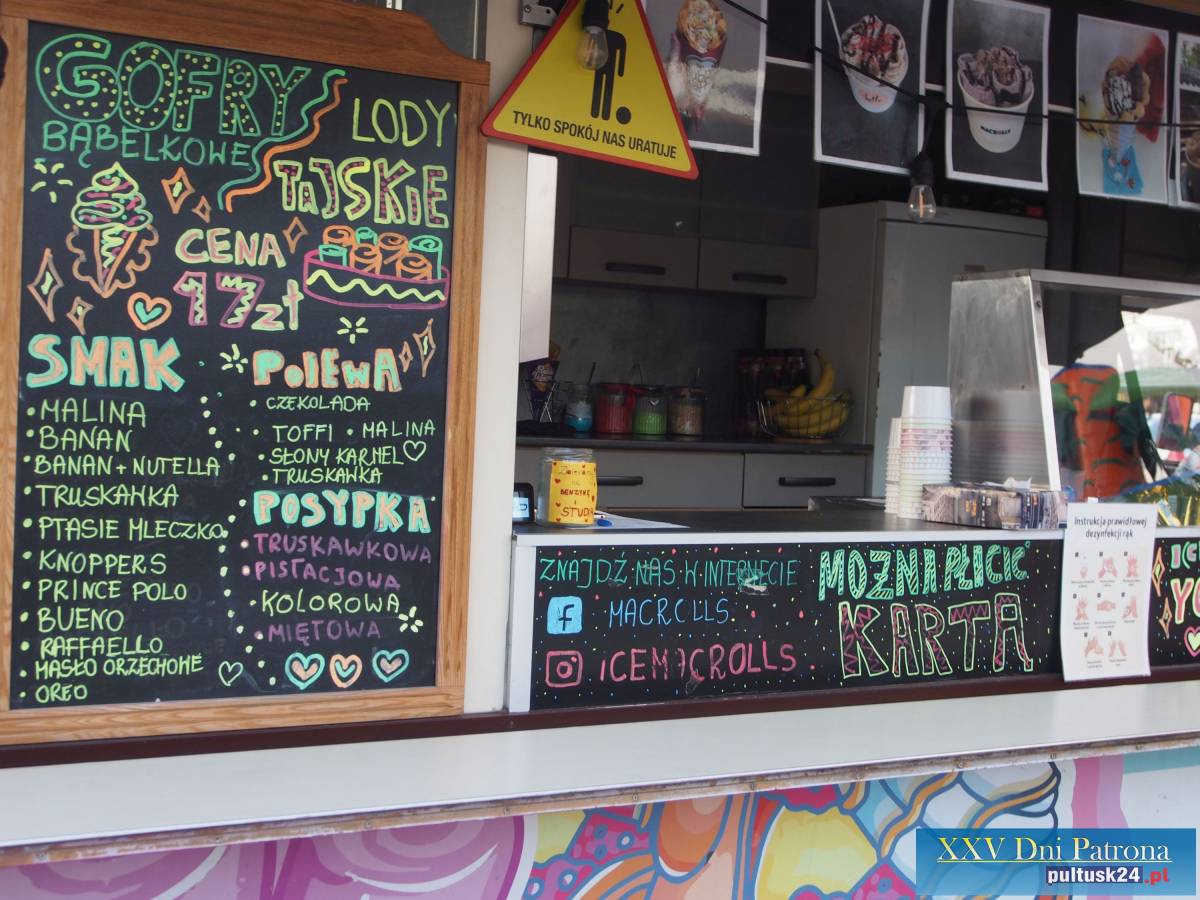 GOFRY
BĄBELKOWE
LODY
TAJSKIE
CENA
17zł
SMAK
• MALINA
• BANAN
• BANAN + NUTELLA
• TRUSKAWKA
• PTASIE MLECZKO
• KNOPPERS
• PRINCE POLO
• BUENO
• RAFFAELLO
• MASŁO ORZECHOWE
• OREO
POLEWA
• CZEKOLADA
• TOFFI • MALINA
• SŁONY KARMEL
• TRUSKAWKA
POSYPKA
• TRUSKAWKOWA
• PISTACJOWA
• KOLOROWA
• MIĘTOWA
TYLKO SPOKÓJ NAS URATUJE
MACROLLS
BENZYNĘ
I
STUDIA
ZNAJDŹ NAS W INTERNECIE
MACROLLS
ICEMACROLLS
MOŻNA PŁACIĆ
KARTĄ
Instrukcja prawidłowej
dezynfekcji rąk
XXV Dni Patrona
pultusk24.pl